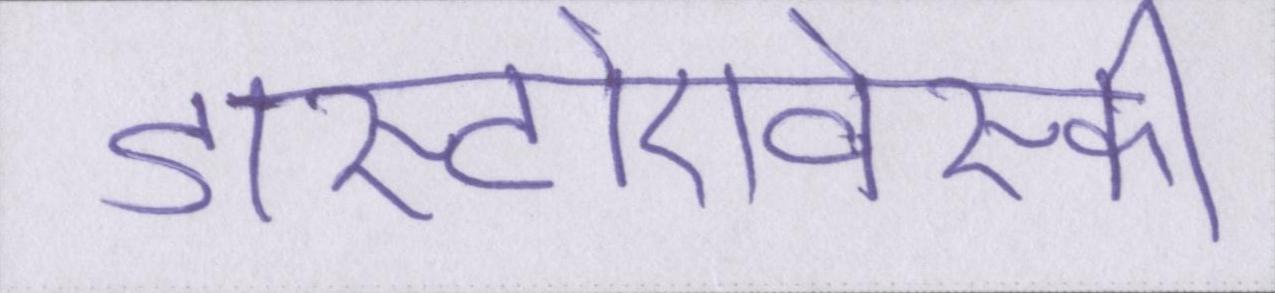 डास्टोएवेस्की